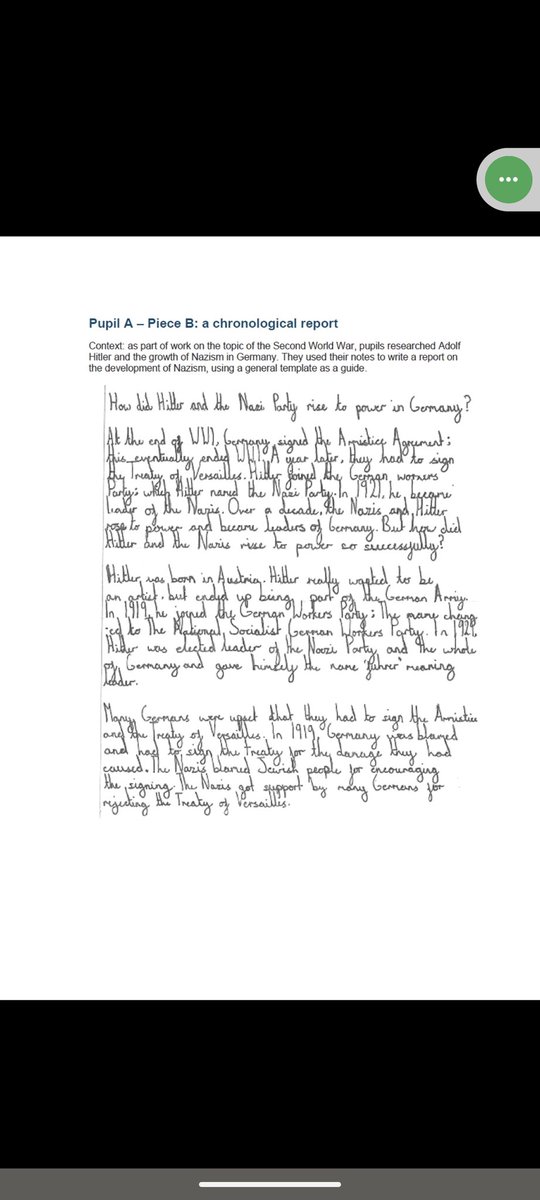 Pupil A – Piece B: a chronological report
Context: as part of work on the topic of the Second World War, pupils researched Adolf
Hitler and the growth of Nazism in Germany. They used their notes to write a report on
the development of Nazism, using a general template as a guide.
How did Hitler and the Nazi Party rise to power in Germany?
At the end of WW1, Germany signed the Armistice Agreement;
this eventually ended WW1. A year later, they had to sign
the Treaty of Versailles. Hitler joined the German workers
Party; which Hitler named the Nazi Party. In 1921, he became
leader of the Nazis. Over a decade, the Nazis and Hitler
rose to power and became leaders of Germany. But how did
Hitler and the Nazis rise to power so successfully?
Hitler was born in Austria. Hitler really wanted to be
an artist, but ended up being part of the German Army.
In 1919, he joined the German Workers Party; The many chang
-ed to The National Socialist German Workers Party. In 1921,
Hitler was elected leader of the Naozi Party and the whole
of Germany and gave himself the name 'führer' meaning
leader.
Many Germans were upset that they had to sign the Armistice
and the Treaty of Versailles. In 1919, Germany was blamed
and had to sign the Treaty for the damage they had
caused. The Nazis blamed Jewish people for encouraging
the signing. The Nazis got support by many Germans for
rejecting the Treaty of Versailles.